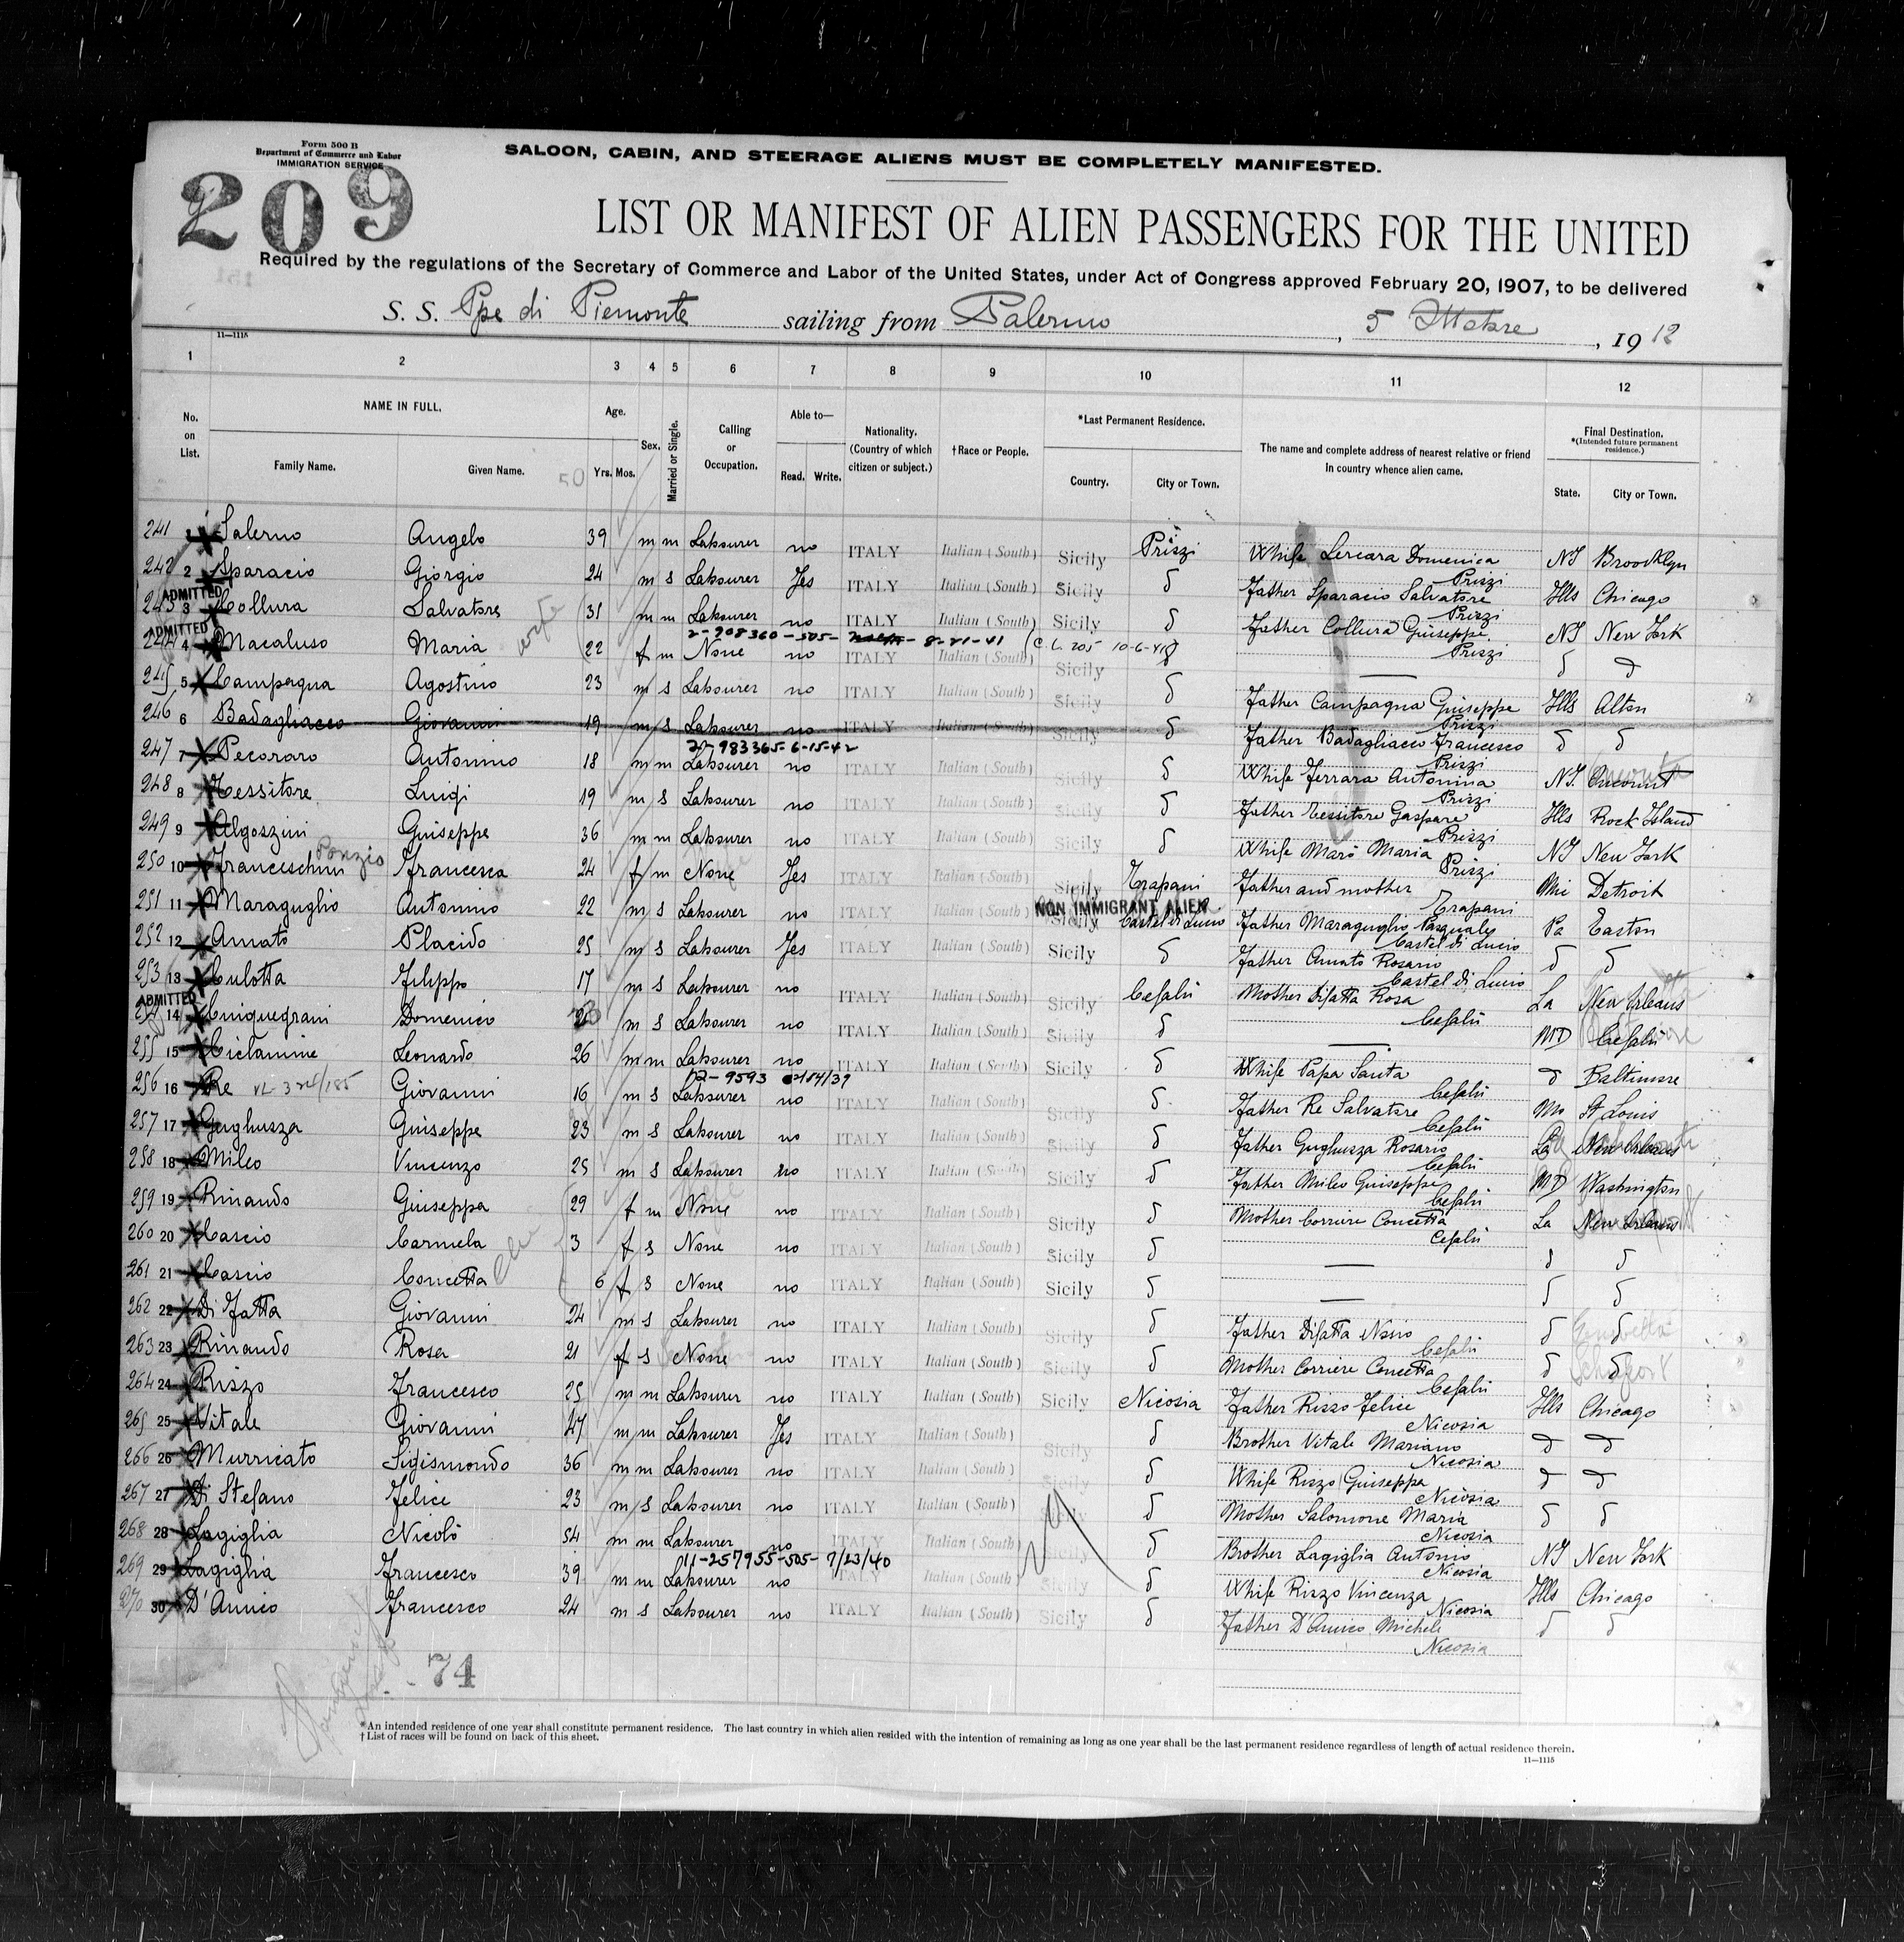 Form 500 B
Department of Commerce and Labor
IMMIGRATION SERVICE
209
SALOON, CABIN, AND STEERAGE ALIENS MUST BE COMPLETELY MANIFESTED.
LIST OR MANIFEST OF ALIEN PASSENGERS FOR THE UNITED
Required by the regulations of the Secretary of Commerce and Labor of the United States, under Act of Congress approved February 20, 1907, to be delivered
S. S. Ppe di Piemonte sailing from Palermo, 5 Ottobre, 1912
11—1115
1 2 3 4 5 6 7 8 9 10 11 12
No. on List. NAME IN FULL. Family Name. Given Name. Age. Yrs. Mos. Sex. Married or Single. Calling or Occupation. Able to— Read. Write. Nationality. (Country of which citizen or subject.) †Race or People. *Last Permanent Residence. Country. City or Town. The name and complete address of nearest relative or friend in country whence alien came. Final Destination. *(Intended future permanent residence.) State. City or Town.
50
241 1 Salerno Angelo 39 m m Labourer no ITALY Italian (South) Sicily Prizzi Whife Lercara Domenica Prizzi NY Broodklyn
242 2 Sparacio Giorgio 24 m s Labourer Yes ITALY Italian (South) Sicily d Father Sparacio Salvatore Prizzi Ills Chicago
ADMITTED
243 3 Collura Salvatore 31 m m Labourer no ITALY Italian (South) Sicily d Father Collura Giuseppe Prizzi NY New York
2-908360-505- 8-21-41 (C.L. 205 10-6-41)
ADMITTED
244 4 Macaluso Maria wife 22 f m None no ITALY Italian (South) Sicily d — d d
245 5 Campagna Agostino 23 m s Labourer no ITALY Italian (South) Sicily d Father Campagna Giuseppe Prizzi Ills Alton
246 6 Badagliacco Giovanni 19 m s Labourer no ITALY Italian (South) Sicily d Father Badagliacco Francesco Prizzi d d
2-983365-6-15-42
247 7 Pecoraro Antonino 18 m m Labourer no ITALY Italian (South) Sicily d Whife Ferrara Antonina Prizzi NY.
248 8 Tessitore Luigi 19 m s Labourer no ITALY Italian (South) Sicily d Father Tessitore Gaspare Prizzi Ills Rock Island
249 9 Algozzini Guiseppe 36 m m Labourer no ITALY Italian (South) Sicily d Whife Marò Maria Prizzi NY New York
250 10 Franceschini Ponzio Francesca 24 f m None Yes ITALY Italian (South) Sicily Trapani Father and mother Trapani Mi Detroit
NON IMMIGRANT ALIEN
251 11 Maraguglio Antonino 22 m s Labourer no ITALY Italian (South) Sicily Castel di Lucio Father Maraguglio Pasquale Castel di Lucio Pa Easton
252 12 Amato Placido 25 m s Labourer Yes ITALY Italian (South) Sicily d Father Amato Rosario Castel di Lucio d d
253 13 Culotta Filippo 17 m s Labourer no ITALY Italian (South) Sicily Cefalù Mother Difatta Rosa Cefalù La New Orleans
ADMITTED
254 14 Cinquegrani Domenico m s Labourer no ITALY Italian (South) Sicily d — MD Cefalù
255 15 Ciclamine Leonardo 26 m m Labourer no ITALY Italian (South) Sicily d Whife Papa Santa Cefalù d Baltimore
256 16 Re Giovanni 16 m s Labourer no ITALY Italian (South) Sicily d Father Re Salvatore Cefalù Mo St Louis
257 17 Gughuzza Guiseppe 23 m s Labourer no ITALY Italian (South) Sicily d Father Gughuzza Rosario Cefalù La New Orleans
258 18 Mileo Vincenzo 25 m s Labourer no ITALY Italian (South) Sicily d Father Mileo Guiseppe Cefalù MD Washington
259 19 Rinaudo Giuseppa 29 f m None no ITALY Italian (South) Sicily d Mother Corriere Concetta Cefalù La New Orleans
260 20 Cascio Carmela 3 f s None no ITALY Italian (South) Sicily d — d d
261 21 Cascio Concetta 6 f s None no ITALY Italian (South) Sicily d — d d
262 22 Di Fatta Giovanni 24 m s Labourer no ITALY Italian (South) Sicily d Father Difatta Nosio Cefalù d d
263 23 Rinaudo Rosa 21 f s None no ITALY Italian (South) Sicily d Mother Corriere Concetta Cefalù d d
264 24 Rizzo Francesco 25 m m Labourer no ITALY Italian (South) Sicily Nicosia Father Rizzo Felice Nicosia Ills Chicago
265 25 Vitale Giovanni 47 m m Labourer Yes ITALY Italian (South) Sicily d Brother Vitale Mariano Nicosia d d
266 26 Murricato Sigismondo 36 m m Labourer no ITALY Italian (South) Sicily d Whife Rizzo Giuseppa Nicosia d d
267 27 Di Stefano Felice 23 m s Labourer no ITALY Italian (South) Sicily d Mother Salomone Maria Nicosia d d
268 28 Lagiglia Nicolò 54 m m Labourer no ITALY Italian (South) Sicily d Brother Lagiglia Antonio Nicosia NY New York
11-257955-505- 7/23/40
269 29 Lagiglia Francesco 39 m m Labourer no ITALY Italian (South) Sicily d Whife Rizzo Vincenza Nicosia Ills Chicago
270 30 D'Amico Francesco 24 m s Labourer no ITALY Italian (South) Sicily d Father D'Amico Michele Nicosia d d
74
*An intended residence of one year shall constitute permanent residence. The last country in which alien resided with the intention of remaining as long as one year shall be the last permanent residence regardless of length of actual residence therein.
†List of races will be found on back of this sheet.
11—1115